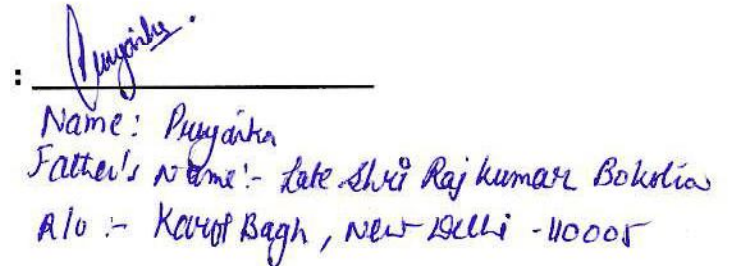 :
Priyanka.
Name: Priyanka
Father's Name:- Late Shri Raj Kumar Bokolia
R/o :- Karol Bagh, New Delhi - 110005